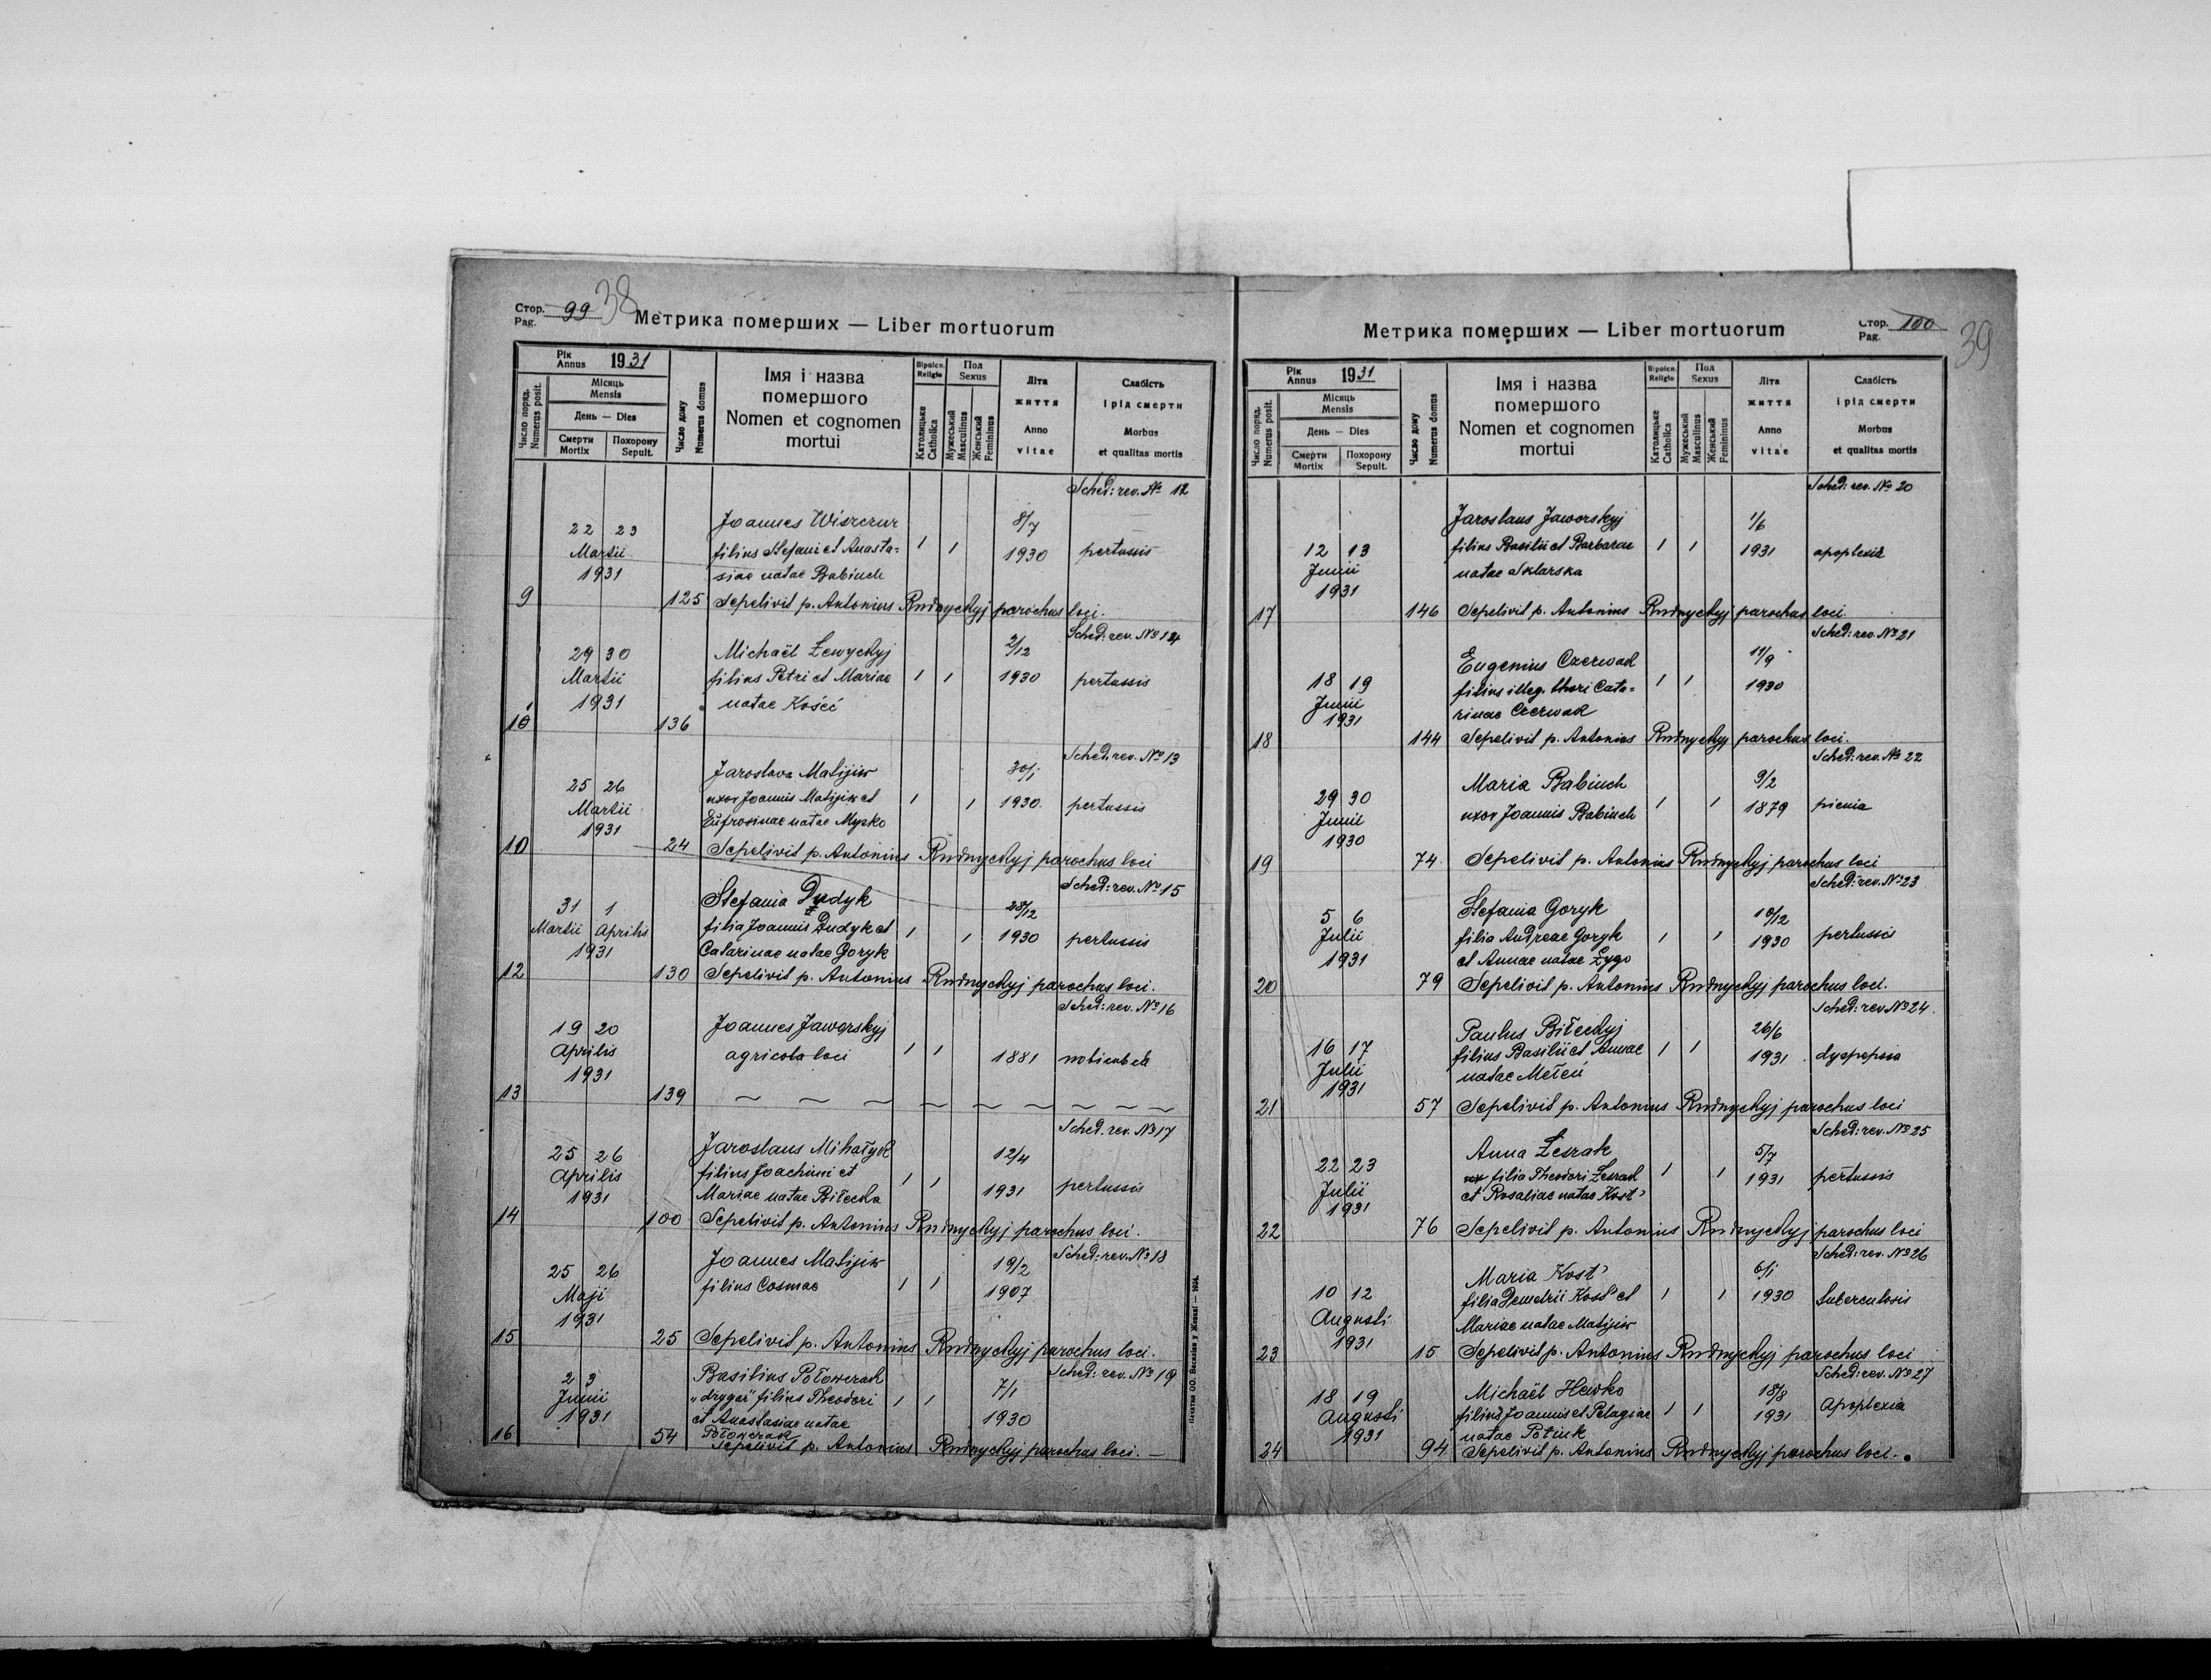 Стор. 99 38
Pag.
Метрика померших — Liber mortuorum
Рік
Annus 1931
Число поряд.
Numerus posit.
Місяць
Mensis
День — Dies
Смерти
Mortix
Похорону
Sepult.
Число дому
Numerus domus
Імя і назва
помершого
Nomen et cognomen
mortui
Віроісп.
Religio
Католицьке
Catholica
Пол
Sexus
Мужеський
Masculinus
Женський
Femininus
Літа
життя
Anno
vitae
Слабість
і рід смерти
Morbus
et qualitas mortis
Sched: rev. № 12
22 23 Joannes Wiszczur 8/7
Martii filius Stefani et Anasta= 1 1 1930 pertussis
1931 siae natae Babiuch
9 125 Sepelivit p. Antonius Rudnyckyj parochus loci.
Sched: rev. № 14
29 30 Michaël Łewyckyj 2/12
Martii filius Petri et Mariae 1 1 1930 pertussis
1931 natae Kość
10 136
Sched. rev. № 13
25 26 Jaroslava Matijiw 30/1
Martii uxor Joannis Matijiw et 1 1 1930. pertussis
1931 Eufrosinae natae Myzko
10 24 Sepelivit p. Antonius Rudnyckyj parochus loci
Sched: rev. № 15
31 1 Stefania Dudyk 28/12
Martii Aprilis filia Joannis Dudyk et 1 1 1930 pertussis
1931 Catarinae natae Goryk
12 130 Sepelivit p. Antonius Rudnyckyj parochus loci.
Sched: rev. № 16
19 20 Joannes Jaworskyj
Aprilis agricola loci 1 1 1881
1931
13 139 ~ ~ ~ ~ ~ ~ ~ ~ ~
Sched. rev. № 17
25 26 Jaroslaus Mihałyk 12/4
Aprilis filius Joachimi et 1 1 1931 pertussis
1931 Mariae natae Biłecka
14 100 Sepelivit p. Antonius Rudnyckyj parochus loci.
Sched: rev. № 18
25 26 Joannes Matijiw 19/2
Maji filius Cosmae 1 1 1907
1931
15 25 Sepelivit p. Antonius Rudnyckyj parochus loci.
Sched: rev. № 19
2 3 Basilius Połowczak 7/1
Junii „drygaś" filius Theodori 1 1 1930
1931 et Anastasiae natae
Połowczak
16 54 Sepelivit p. Antonius Rudnyckyj parochus loci. —
Печатня ОО. Василіян у Жовкві — 1924.
Метрика померших — Liber mortuorum
Стор. 100
Pag.
39
Рік
Annus 1931
Число поряд.
Numerus posit.
Місяць
Mensis
День — Dies
Смерти
Mortix
Похорону
Sepult.
Число дому
Numerus domus
Імя і назва
помершого
Nomen et cognomen
mortui
Віроісп.
Religio
Католицьке
Catholica
Пол
Sexus
Мужеський
Masculinus
Женський
Femininus
Літа
життя
Anno
vitae
Слабість
і рід смерти
Morbus
et qualitas mortis
Sched: rev. № 20
Jaroslaus Jaworskyj 1/6
12 13 filius Basilii et Barbarae 1 1 1931 apoplexia
Junii natae Sklarska
1931
17 146 Sepelivit p. Antonius Rudnyckyj parochus loci.
Sched: rev. № 21
Eugenius Czerwak 11/9
18 19 filius illeg. thori Cata= 1 1 1930
Junii rinae Czerwak
1931
18 144 Sepelivit p. Antonius Rudnyckyj parochus loci.
Sched: rev. № 22
Maria Babiuch 9/2
29 30 uxor Joannis Babiuch 1 1 1879
Junii
1930
19 74. Sepelivit p. Antonius Rudnyckyj parochus loci
Sched: rev. № 23
Stefania Goryk 10/12
5 6 filia Andreae Goryk 1 1 1930 pertussis
Julii et Annae natae Zygo
1931
20 79 Sepelivit p. Antonius Rudnyckyj parochus loci.
Sched: rev № 24.
Paulus Biłeckyj 26/6
16 17 filius Basilii et Annae 1 1 1931 dyspepsia
Julii natae Mełeń
1931
21 57 Sepelivit p. Antonius Rudnyckyj parochus loci
Sched: rev. № 25
Anna Łeszak 5/7
22 23 ux filia Theodori Łeszak 1 1 1931 pertussis
Julii et Rosaliae natae Kost'
1931
22 76 Sepelivit p. Antonius Rudnyckyj parochus loci
Sched: rev. № 26
Maria Kost' 6/1
10 12 filia Demetrii Kost' et 1 1 1930 tuberculosis
Augusti Mariae natae Matijiw
1931
23 15 Sepelivit p. Antonius Rudnyckyj parochus loci
Sched: rev. № 27
18 19 Michaël Hewko 18/8
Augusti filius Joannis et Pelagiae 1 1 1931 Apoplexia
1931 natae Potiuk
24 94 Sepelivit p. Antonius Rudnyckyj parochus loci.